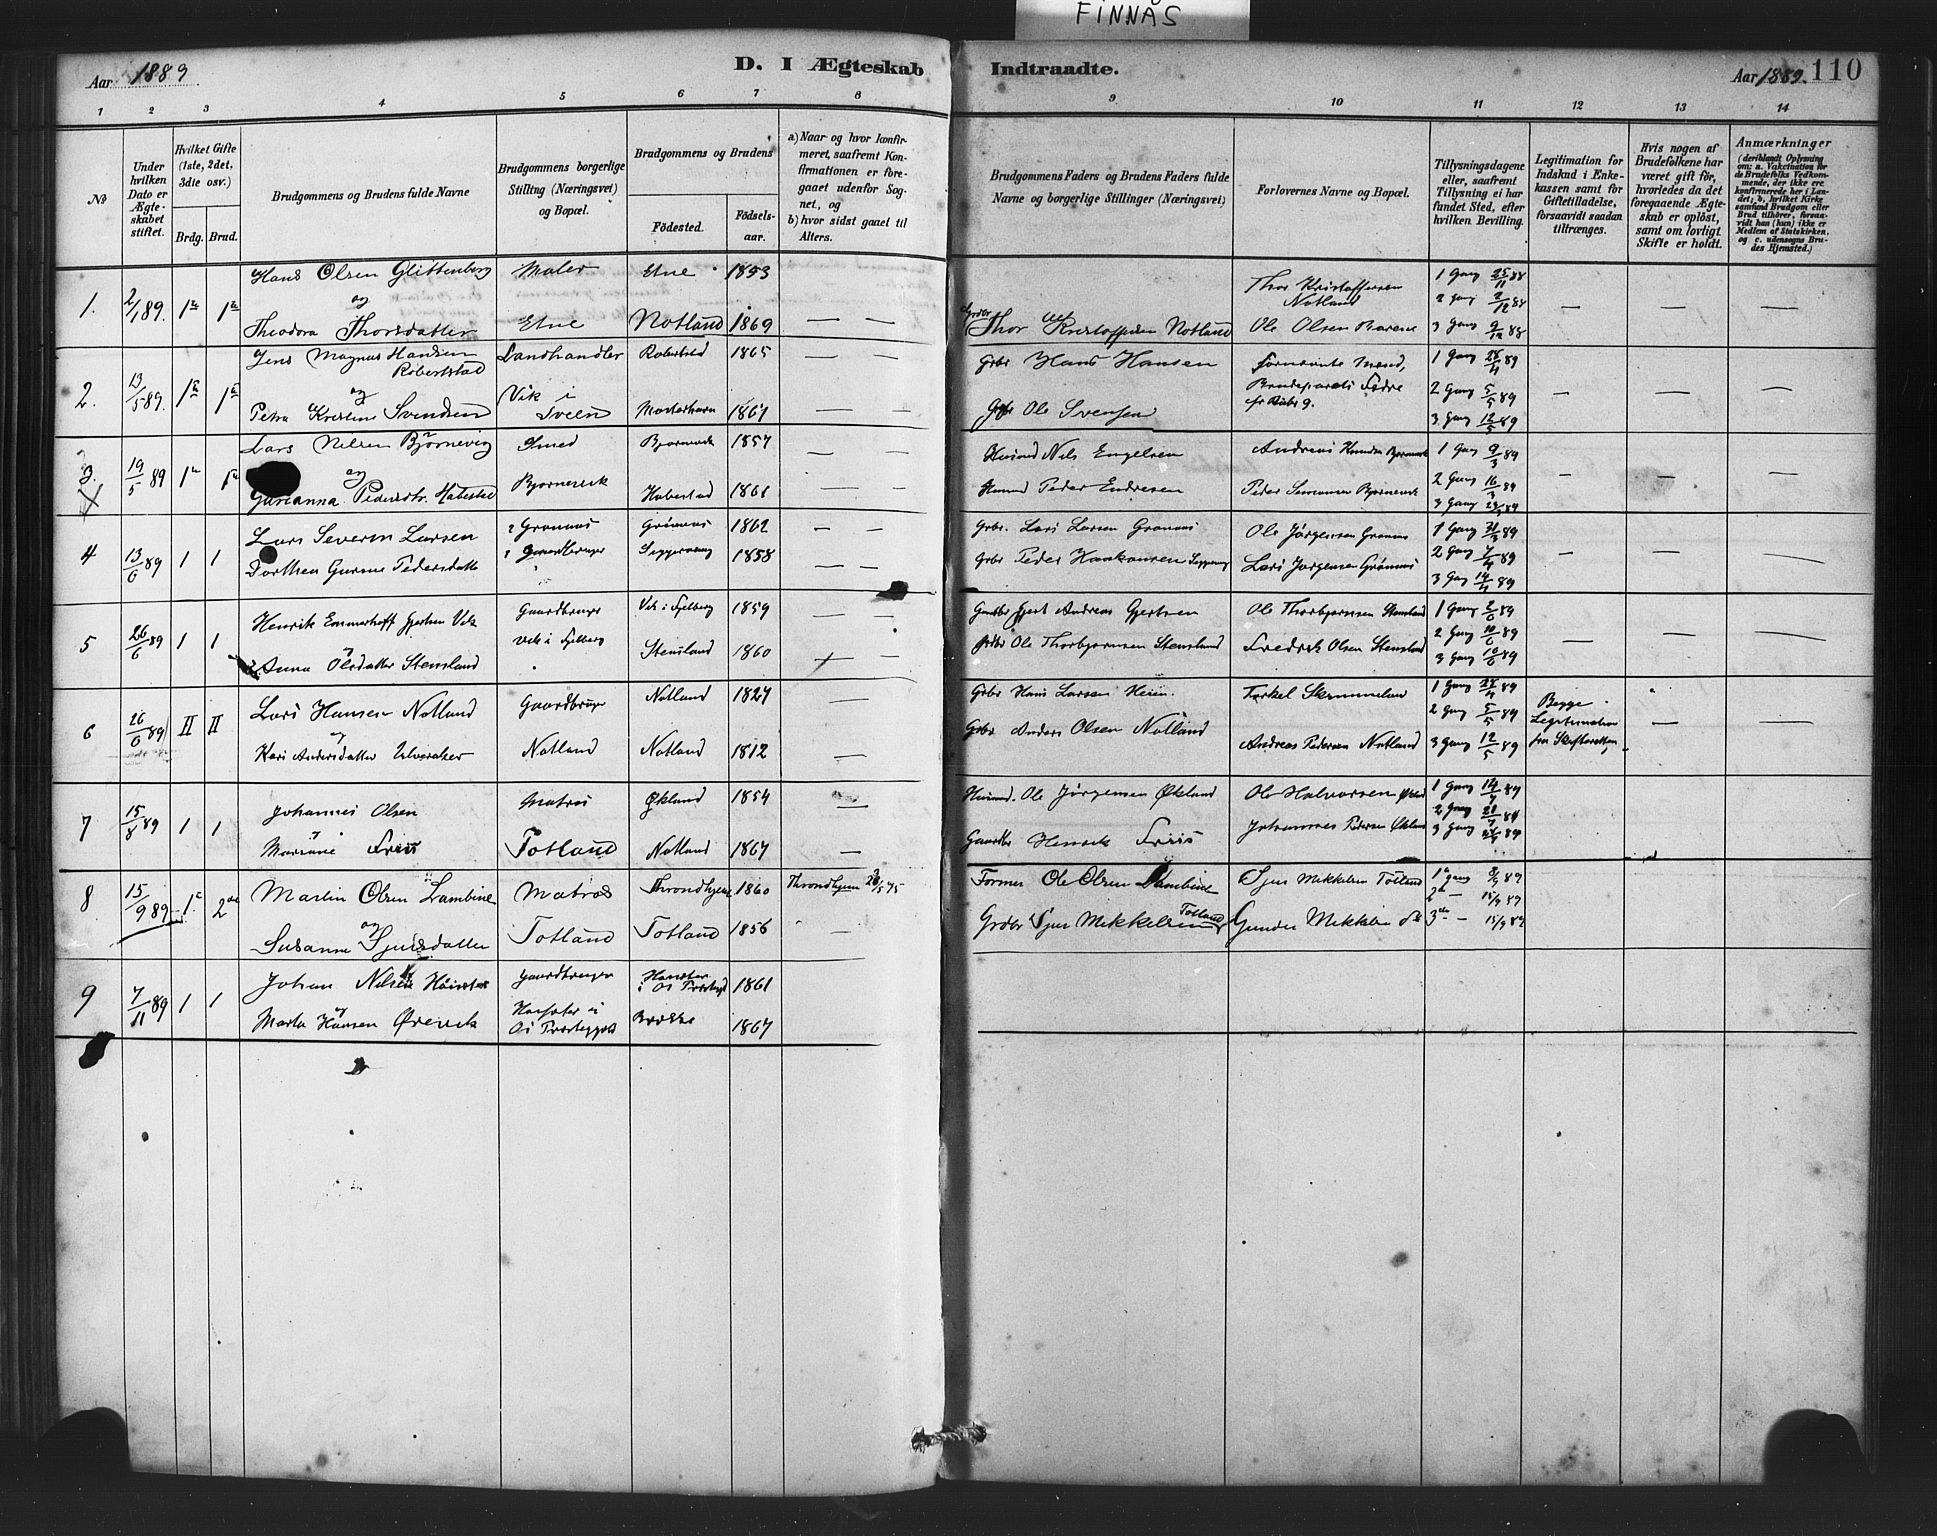 FINNÅS
Aar 1889.
D. I Ægteskab Indtraadte.
Aar 1889. 110
1 2 3 4 5 6 7 8 9 10 11 12 13 14
No
Under hvilken Dato er Ægteskabet stiftet.
Hvilket Gifte (1ste, 2det, 3die osv.)
Brdg. Brud.
Brudgommens og Brudens fulde Navne
Brudgommens borgerlige Stilling (Næringsvei) og Bopæl.
Brudgommens og Brudens
Födested.
Födselsaar.
a) Naar og hvor konfirmeret, saafremt Konfirmationen er foregaaet udenfor Sognet, og
b) hvor sidst gaaet til Alters.
Brudgommens Faders og Brudens Faders fulde Navne og borgerlige Stillinger (Næringsvei)
Forlovernes Navne og Bopæl.
Tillysningsdagene eller, saafremt Tillysning ei har fundet Sted, efter hvilken Bevilling.
Legitimation for Indskud i Enkekassen samt for Giftetilladelse, forsaavidt saadan tiltrænges.
Hvis nogen af Brudefolkene har været gift för, hvorledes da det foregaaende Ægteskab er oplöst, samt om lovligt Skifte er holdt.
Anmærkninger
(deriblandt Oplysning om: a. Vakcination for de Brudefolks Vedkommende, der ikke ere konfirmerede her i Landet; b. hvilket Kirkesamfund Brudgom eller Brud tilhörer, forsaavidt han (hun) ikke er Medlem af Statskirken, og c. udensogns Brudes Hjemsted.)
1. 2/1 89. 1ste 1ste
Hans Olsen Glittenberg Maler Etne 1853
og
Theodora Thorsdatter Etne Notland 1869 — —
Grdbr Thor Kristoffersen Notland
Thor Kristoffersen Notland
Ole Olsen
1 Gang 25/11 88
2 Gang 2/12 88
3 Gang 9/12 88
— — —
2. 13/5 89.
Jens Magnus Hansen Robertstad Landhandler 1865 — —
og
Petra Kristine Svendsen Vik i Sveen Mosterhavn 1867 — —
Grbr Hans Hansen
Ole Svensen
Brudeparets Fædre
1 Gang 28/4 89
2 Gang 5/5 89
3 Gang 12/5 89
— — —
3. 19/5 89
Lars Nilsen Bjørnevig Smed 1857 — —
og
Pedersdtr. Habestad Bjørnevik Habestad 1861 — —
Husmd Nils Engelsen
Peder Endresen
Andreas
Peder
1 Gang 9/3 89
2 Gang 16/3 89
3 Gang
— — —
4 13/6 89 1 1
Lars Severin Larsen Grønnås 1862 — —
Dorthea Gurine Pedersdatter Gaardbruger 1858 — —
Grbr. Lars Larsen
Grbr Peder Haakonsen
Ole Jørgensen
Lars Jørgensen
1 Gang 31/3 89
2 Gang 7/4 89
3 Gang 14/4 89
— — —
5 26/6 89 1 1
Henrik Emmerhoff Gjertsen Vik Gaardbruger Vik i Fjelberg 1859 — —
og
Anna Olsdatter Stensland Vik i Fjelberg Stensland 1860 — —
Gjert Andreas Gjertsen
Grdbr Ole Thorbjørnsen Stensland
Ole Thorbjørnsen Stensland
Fredrik Olsen Stensland
1 Gang 2/6 89
2 Gang 10/6 89
3 Gang 10/6 89
— — —
6 26/6 89 II II
Lars Hansen Notland Gaardbruger Notland 1827 —
og
Kari Andersdatter Ulveraker Notland Notland 1812 —
Grbr Hans Larsen Heien.
Grbr Anders Olsen Notland
Torkel
Andreas Pedersen Notland
1 Gang 28/4 89
2 Gang 5/5 89
3 Gang 12/5 89
Begge Legitimation fra Skifteretten
— —
7 15/8 89 1 1
Johannes Olsen Matros Økland 1854 —
og
Mariane Friis Totland Notland 1867 —
Husmd. Ole Jørgensen Økland
Gaardbr Henrik Friis
Ole Halvorsen Økland
Johannes Pedersen Økland
1 Gang 14/7 89
2 Gang 21/7 89
3 Gang 28/7 89
8 15/9 89 1ste 2den
Martin Olsen Lambine Matros Throndhjem 1860 Throndhjem
og
Susanne Sjursdatter Totland Totland 1856 —
Former Ole Olsen Lambine
Grdbr Sjur Mikkelsen Totland
Sjur Mikkelsen Totland
Gunder Mikkelsen
1ste gang 8/9 89
2den — 15/9 89
3die — 15/9 89
9 7/11 89 1 1
Johan Nilsen Gaardbruger i Os 1861
og
Marta Hansen Ørevik 1867